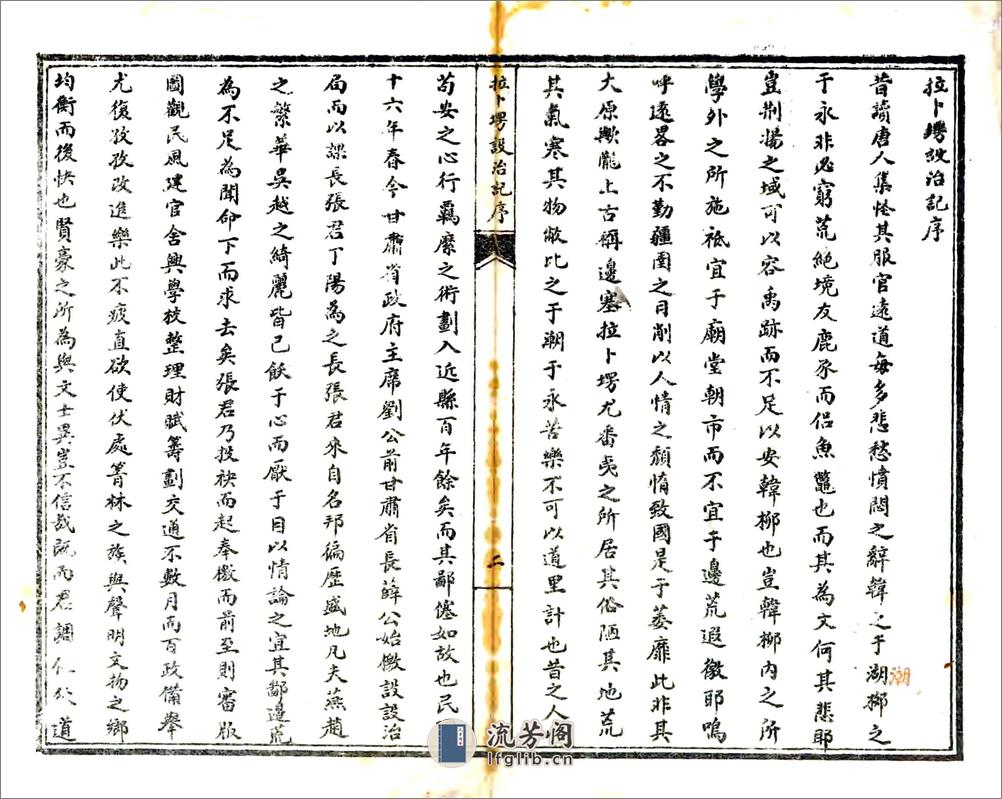 拉卜塄设治記序
昔讀唐人集怪其服官遠道每多悲愁憤悶之辭韓之于湖柳之
潮
于永非必窮荒絕境友鹿豕而侣魚鼈也而其為文何其悲耶
豈荆揚之域可以容禹跡而不足以安韓柳也豈韓柳内之所
學外之所施祗宜于廟堂朝市而不宜于邊荒遐徼耶嗚
呼遠畧之不勤疆圉之日削以人情之頹惰致國是于萎靡此非其
大原歟隴上古稱邊塞拉卜塄尤番夷之所居其俗陋其地荒
其氣寒其物敝比之于潮于永苦樂不可以道里計也昔之人
拉卜塄設治記序
二
苟安之心行羈縻之術劃入近縣百年餘矣而其鄙僿如故也民
十六年春今甘肅省政府主席劉公前甘肅省長薛公始檄設設治
局而以課長張君丁陽為之長張君來自名邦徧歷盛地凡夫燕趙
之繁華吳越之綺麗皆已飫于心而厭于目以情論之宜其鄙邊荒
為不足為聞命下而求去矣張君乃投袂而起奉檄而前至則審版
圖觀民風建官舍興學校整理財賦籌劃交通不數月而百政備舉
尤復孜孜改進樂此不疲直欲使伏處箐林之族與聲明文物之鄉
均衡而後快也賢豪之所為與文士異豈不信哉既而君調 道
流芳阁
lfglib.cn